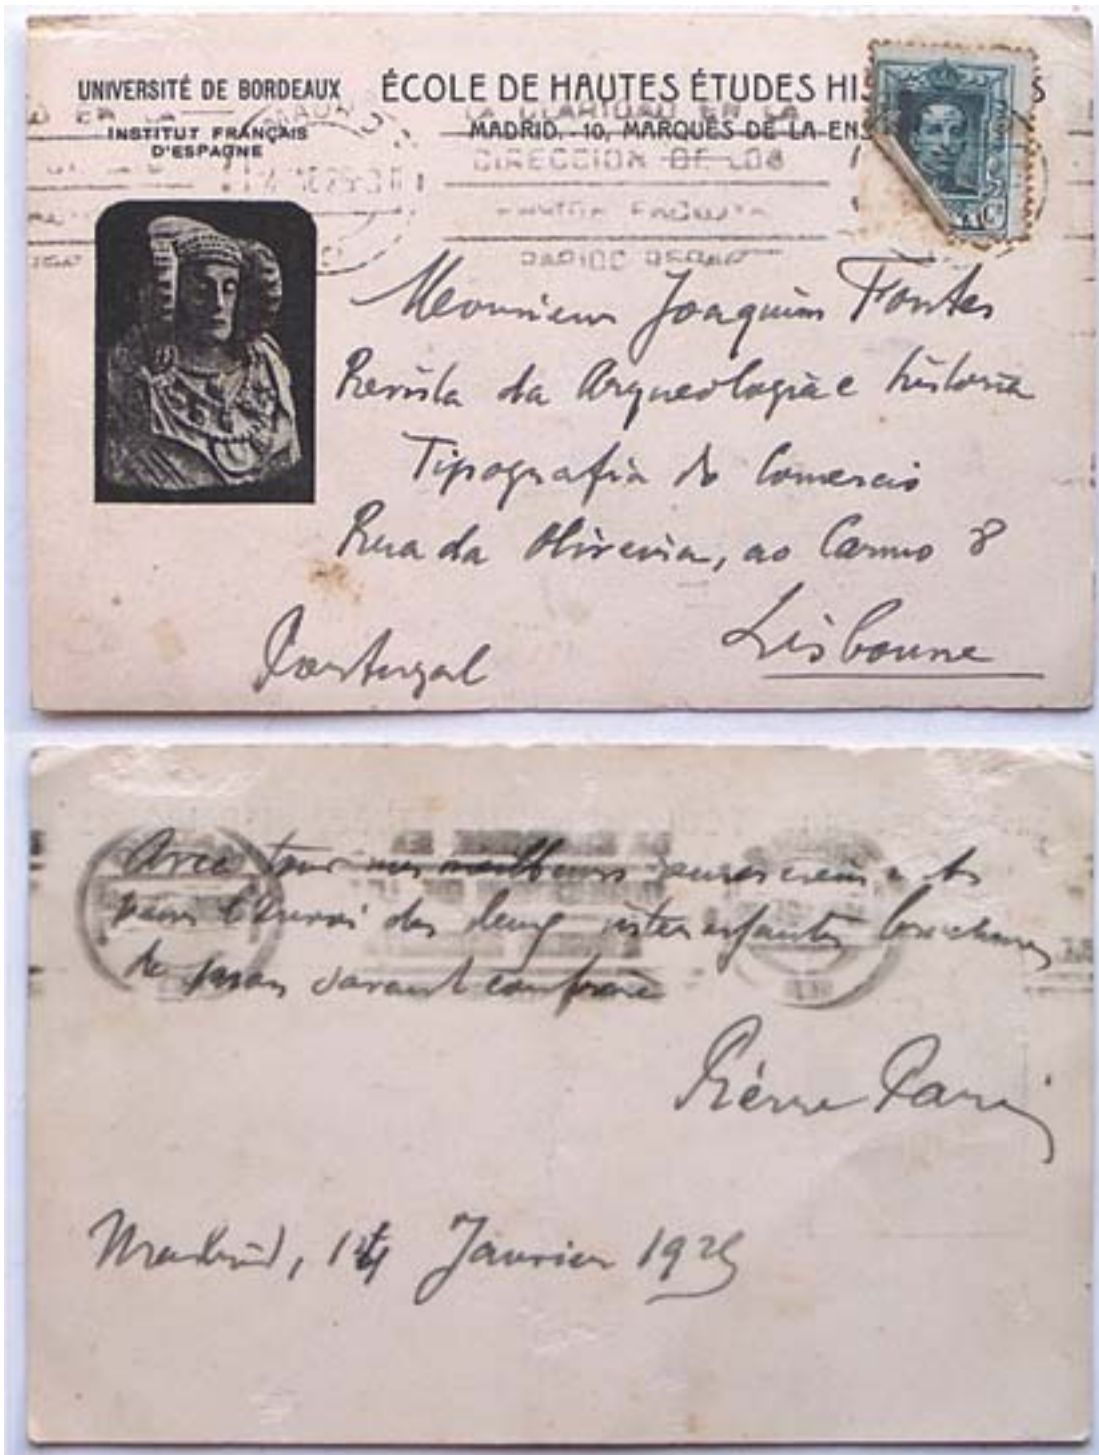 UNIVERSITÉ DE BORDEAUX
INSTITUT FRANÇAIS
D'ESPAGNE
ÉCOLE DE HAUTES ÉTUDES HIS S
MADRID. - 10, MARQUÉS DE LA ENS
LA CLARIDAD EN LA
DIRECCION DE LOS
Monsieur Joaquim Fontes
Revista da Arqueologia e historia
Tipografia do Comercio
Rua da Oliveira, ao Carmo 8
Lisbonne
Portugal
Avec tous mes meilleurs remerciements
pour l'envoi des deux intéressantes brochures
de mon savant confrère
Pierre Paris
Madrid, 14 Janvier 1925